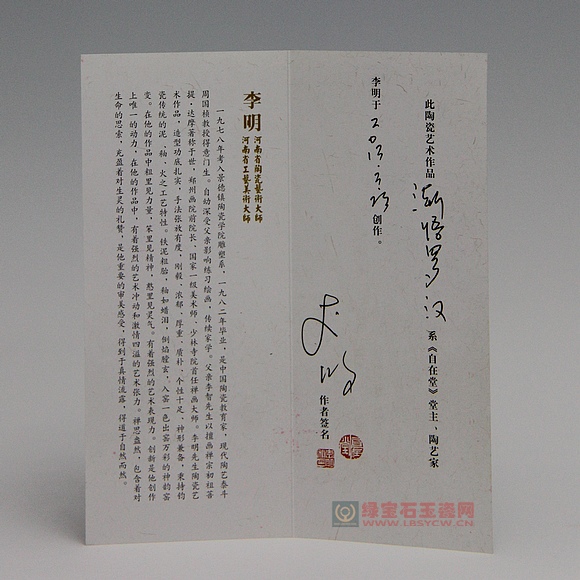 此陶瓷艺术作品 渐悟罗汉 系《自在堂》堂主、陶艺家
李明于 创作。
作者签名
李明 河南省陶瓷艺术大师
河南省工艺美術大师
一九七八年考入景德镇陶瓷学院雕塑系，一九八二年毕业，是中国陶瓷教育家，现代陶艺泰斗
周国桢教授得意门生。自幼深受父亲影响练习绘画，传续家学。父亲李智先生以擅画禅宗初祖菩
提·达摩著称于世，郑州画院前院长、国家一级美术师、少林寺院首任禅画大师。李明先生陶瓷艺
术作品，造型功底扎实，手法张放有度，刚毅、浓郁、厚重、质朴、个性十足、神形兼备，秉持钧
瓷传统的泥、釉、火之工艺特性。铁泥粗胎，釉如蜡泪，倒焰膛玄，入窑一色出窑万彩的神韵窑
变。在他的作品中粗里见力量，笨里见精神，憨里见灵气。有着强烈的艺术表现力。创新是他创作
上唯一的动力，在他的作品中，有着强烈的艺术冲动和激情四溢的艺术张力。禅思盎然，包含着对
生命的思索，充盈着对生灵的礼赞，是他重要的审美感受，得到于真情流露，得道于自然而然。
绿宝石玉瓷网
WWW.LBSYCW.CN